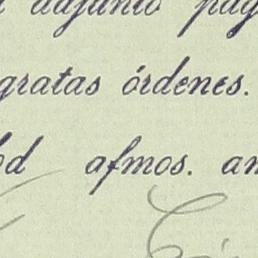 adjunto pag
gratas órdenes.
od afmos. am